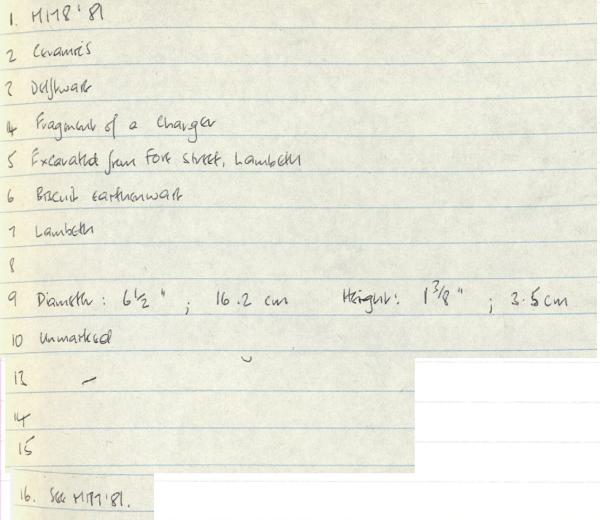 1. M178'81
2 Ceramics
3 Delftware
4 Fragment of a Charger
5 Excavated from Fore Street, Lambeth
6 Biscuit earthenware
7 Lambeth
8
9 Diameter: 6½" ; 16.2 cm Height: 1⅜" ; 3.5 cm
10 Unmarked
13 –
14
15
16. See